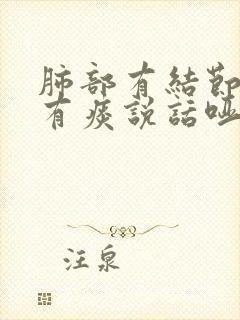 肺部有結節
有痰說話啞
汪泉